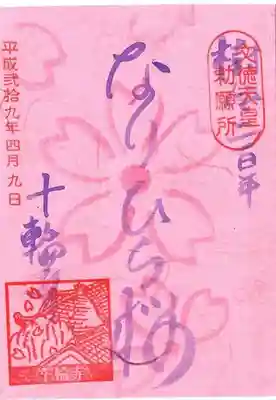 文徳天皇
勅願所
二百年
なりひら桜
十輪寺
平成弐拾九年四月九日
十輪寺